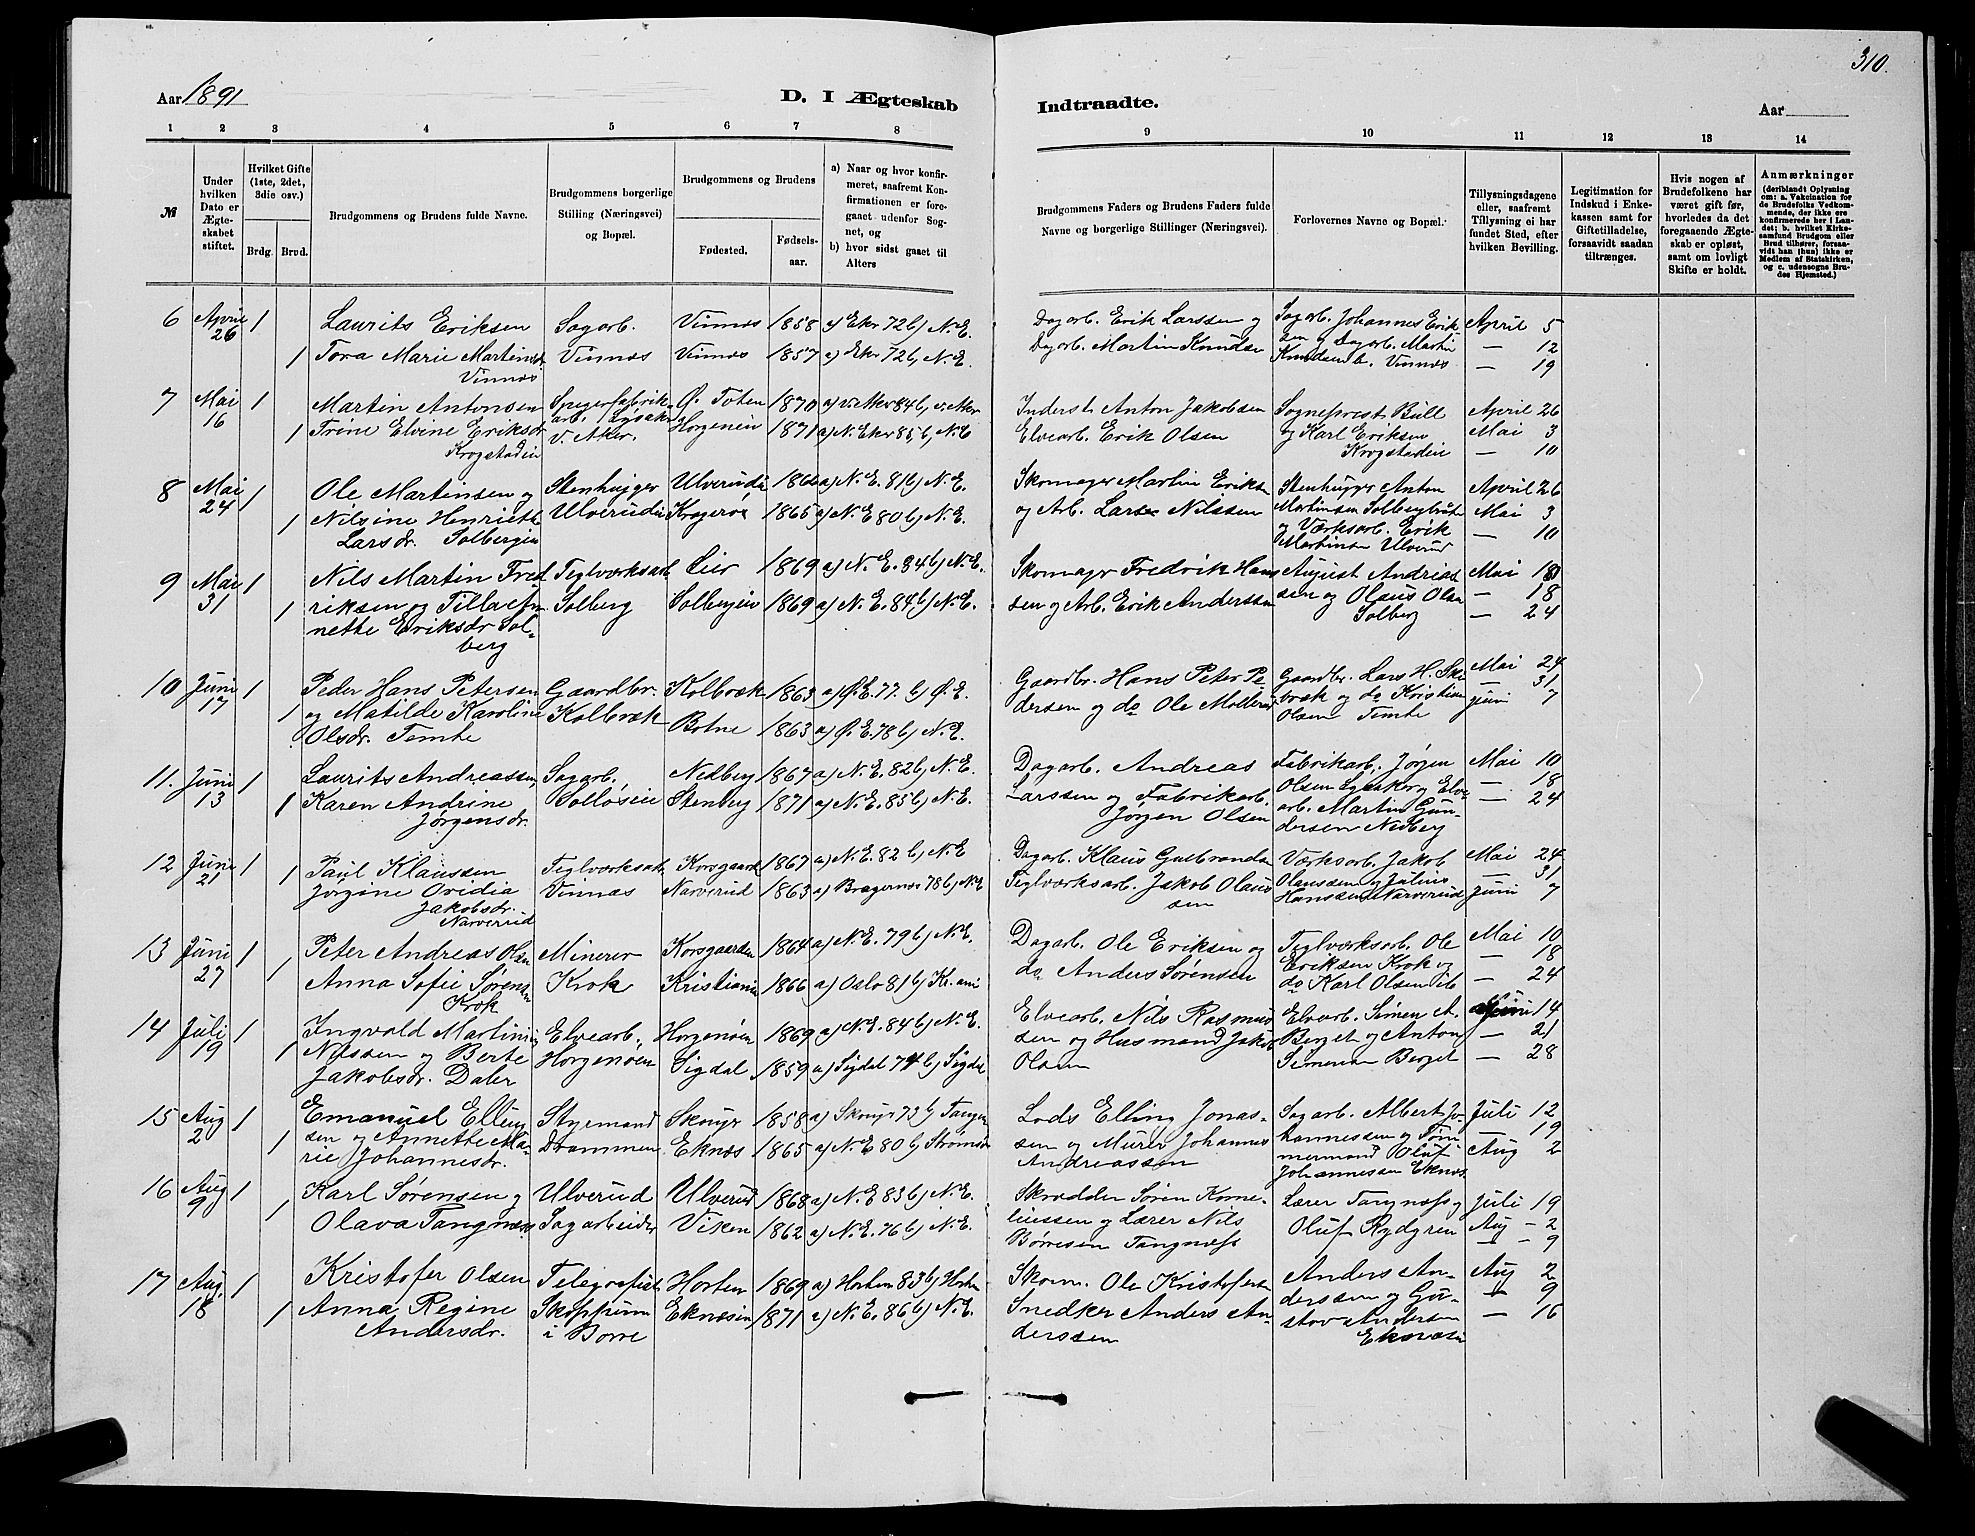 310.
Aar 1891
D. I Ægteskab
Indtraadte.
Aar
1 2 3 4 5 6 7 8
9 10 11 12 13 14
№
Under hvilken Dato er Ægteskabet stiftet.
Hvilket Gifte (1ste, 2det, 3die osv.)
Brdg. Brud.
Brudgommens og Brudens fulde Navne.
Brudgommens borgerlige Stilling (Næringsvei) og Bopæl.
Brudgommens og Brudens
Fødested.
Fødselsaar.
a) Naar og hvor konfirmeret, saafremt Konfirmationen er foregaaet udenfor Sognet, og
b) hvor sidst gaaet til Alters
Brudgommens Faders og Brudens Faders fulde Navne og borgerlige Stillinger (Næringsvei).
Forlovernes Navne og Bopæl.
Tillysningsdagene eller, saafremt Tillysning ei har fundet Sted, efter hvilken Bevilling.
Legitimation for Indskud i Enkekassen samt for Giftetilladelse, forsaavidt saadan tiltrænges.
Hvis nogen af Brudefolkene har været gift før, hvorledes da det foregaaende Ægteskab er opløst, samt om lovligt Skifte er holdt.
Anmærkninger (deriblandt Oplysning om: a. Vakcination for de Brudefolks Vedkommende, der ikke ere konfirmerede her i Landet; b. hvilket Kirkesamfund Brudgom eller Brud tilhører, forsaavidt han (hun) ikke er Medlem af Statskirken, og c. udensogns Brudes Hjemsted.)
6 April 26 1 Laurits Eriksen Sagarb. Vinnes 1858 a) Eker 72 b) N.E. Dagarb. Erik Larssen og Sagarb. Johannes Erik- April 5
1 Tora Marie Martinsdr. Vinnæs Vinnæs 1857 a) Eker 72 b) N.E. Dagarb. Martin Knudsen sen og Dagarb. Martin — 12
Vinnæs Knudsen b. Vinnæs — 19
7 Mai 16 1 Martin Antonsen Spigerfabrik- Ø. Toten 1870 a) v. Aker 84 b) v. Aker Inderst Anton Jakobsen Sogneprest Bull April 26
1 Trine Elvine Eriksdr. arb. Lysaker Horgenein 1871 a) N. Eker 85 b) N.E Elvearb. Erik Olsen og Karl Eriksen Mai 3
Krogstadein V. Aker. Krogstadein — 10
8 Mai 24 1 Ole Martinsen og Stenhugger Ulverudei a) N.E. 81 b) N.E. Skomager Martin Eriks. Stenhugger Anton April 26
1 Nilsine Henriette Ulverudein Kragerøe 1865 a) N.E 80 b) N.E. og Arb. Lars Nilssen Martinsen Solbergbråte Mai 3
Larsdr. Solbergein og Værksarb. Erik — 10
Martinsen Ulverud
9 Mai 31 1 Nils Martin Fred- Teglværksarb. Lier 1869 a) N.E. 84 b) N.E. Skomager Fredrik Han- August Andreas- Mai 10
1 riksen og Tilla An- Solberg Solbergein 1869 a) N.E. 84 b) N.E. sen og Arb. Erik Anderssen sen og Olaus Olsen — 18
nette Eriksdr. Sol- Solberg — 24
berg
10 Juni 17 1 Peder Hans Petersen Gaardbr. Kolbræk 1863 a) Ø.E. 77. b) Ø.E. Gaardbr. Hans Peter Pe- Gaardbr. Lars H. Ske- Mai 24
1 og Matilde Karoline Kolbræk Botne 1863 a) Ø.E. 78 b) N.E. dersen og do Ole Mollerød bræk og do Kristian — 31
Olsdr. Temte Olsen Temte juni 7
11. Juni 13 1 Laurits Andreassen, Sagarb. Nedberg 1867 a) N.E. 82 b) N.E. Dagarb. Andreas Fabrikarb. Jørgen Mai 10
1 Karen Andrine Solløseie Stenberg 1871 a) N.E. 85 b) N.E. Larssen og Fabrikarb. Olsen Lysaker og Elve- — 18
Jørgensdr. Jørgen Olsen arb. Martin Gun- — 24
dersen Nedberg
12 Juni 21 1 1 Paul Klaussen Teglværksarb. Korsgaard 1867 a) N.E. 82 b) N.E Dagarb. Klaus Gulbrandsen Værksarb. Jakob Mai 24
Jorgine Ovidia Vinnæs Narverud 1863 a) Bragernes 78 b) N.E Teglværksarb. Jakob Olaus- Olaussen og Julius — 31
Jakobsdr. sen Hanssen Narverud Juni 7
Narverud
13 Juni 27 1 1 Peter Andreas Olsen Minerer Korsgaarden 1864 a) N.E. 79 b) N.E. Dagarb. Ole Eriksen og Teglværksarb. Ole Mai 10
Anna Sofie Sørensen Krok Kristiania 1866 a) Oslo 81 b) Kr.ania do Anders Sørensen Eriksen Krok og — 18
Krok do Karl Olsen ib — 24
14 Juli 19 1 Ingvald Martini- Elvearb., Horgenøen 1869 a) N.E. 84 b) N.E. Elvearb. Nils Rasmus- Elvearb. Simen A. Juni 14
1 Nilssen og Berte Horgenøen Sigdal 1859 a) Sigdal 74 b) Sigdal sen og Husmand Jakob Berget og Anton — 21
Jakobsdr. Daler Olsen Simensen Berget — 28
15 Aug 2 1 Emanuel Elling- Styrmand Skouger 1858 a) Skouger 73 b) Tangen Lods Elling Jonas- Sagarb. Albert Jo- Juli 12
1 sen og Annette Ma- Drammen Eknæs 1865 a) N.E 80 b) Strømsø sen og Murer Johannes hannessen og Tøm- — 19
rie Johannesdr. Andreassen mermand Oluf Aug 2
Johannessen Eknæs
16 Aug 9 1 Karl Sørensen og Ulverud Ulverud 1868 a) N.E 83 b) N.E. Skrædder Søren Korne- Lærer Tangnæss og Juli 19
1 Olava Tangnæss Sagarbeider Viken 1862 a) N.E. 76 b) N.E. liussen og Lærer Nils Oluf Rydgren Aug — 2
Børresen Tangnæss — — 9
17 Aug. 18 1 Kristofer Olsen Telegrafist Horten 1869 a) Horten 83 b) Horten Skom. Ole Kristofers. Anders An- Aug 2
1 Anna Regine Skoppum Eknæsein 1871 a) N.E. 86 b) N.E. Snedker Anders An- derssen og Gu- — 9
Andersdr. i Borre derssen stav Andersen — 16
Eknæsein